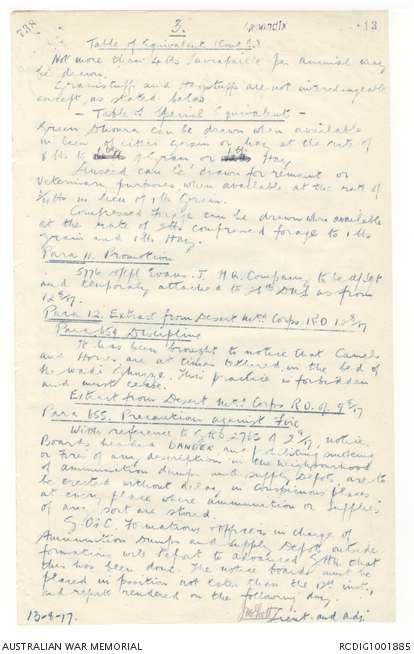 738
3.
Appendix
13
Table of Equivalent (Contd.)
Not more than 4 lbs per animal may
be drawn.
Grainstuff and Haystuff are not interchangeable
except, as stated below
- Table of Special Equivalents -
Green Dhurra can be drawn when available
in lieu of either grain or hay at the rate of
8 lbs to 1 lb of Grain or 1 lb Hay
Linseed can be drawn for remount or
Veterinary purposes when available at the rate of
lbs in lieu of 1 lb Grain.
Compressed Forage can be drawn when available
at the rate of 2 lbs compressed forage to 1 lb
grain and 1 lb Hay.
Para 11. Promotion
5776 Evans. J. H.Q. Company, to be
and temporarily attached to as from
12
Para 12. Extract from Desert Mtd. Corps. R.O.
Para 654 Discipline
It has been brought to notice that Camels
and Horses are at times tethered in the bed of
the Wadi Ghuzze. This practice is forbidden
and must cease.
Extract from Desert Mtd. Corps R.O. of
Para 655. Precautions against Fire
With reference to 2763 of notice
Boards headed DANGER and prohibiting smoking
or fires of any description in the neighbourhood
of ammunition dumps and supply Depots, are to
be erected without delay in conspicuous places
at every place where ammunition or supplies
of any sort are stored
G.Os.C. Formations & officers in charge of
Ammunition Dumps and Supply Depots outside
formations will report to advanced GHQ that
this has been done. The notice boards must be
placed in position not later than the 15th inst,
and report rendered on the following day.
13-8-17.
Lieut. and adj
AUSTRALIAN WAR MEMORIAL
RCDIG1001885